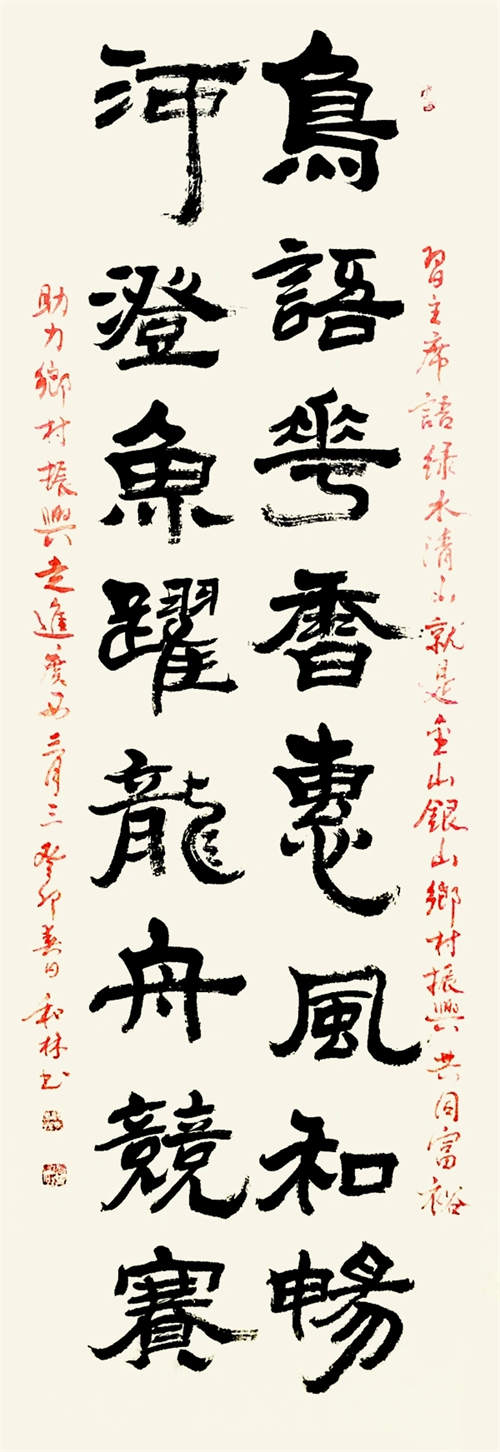 習主席語绿水清山就是金山銀山鄉村振興共同富裕
鳥語華香惠風和暢
河澄魚躍龍舟競賽
助力鄉村振興走進三月三癸卯春日和林书